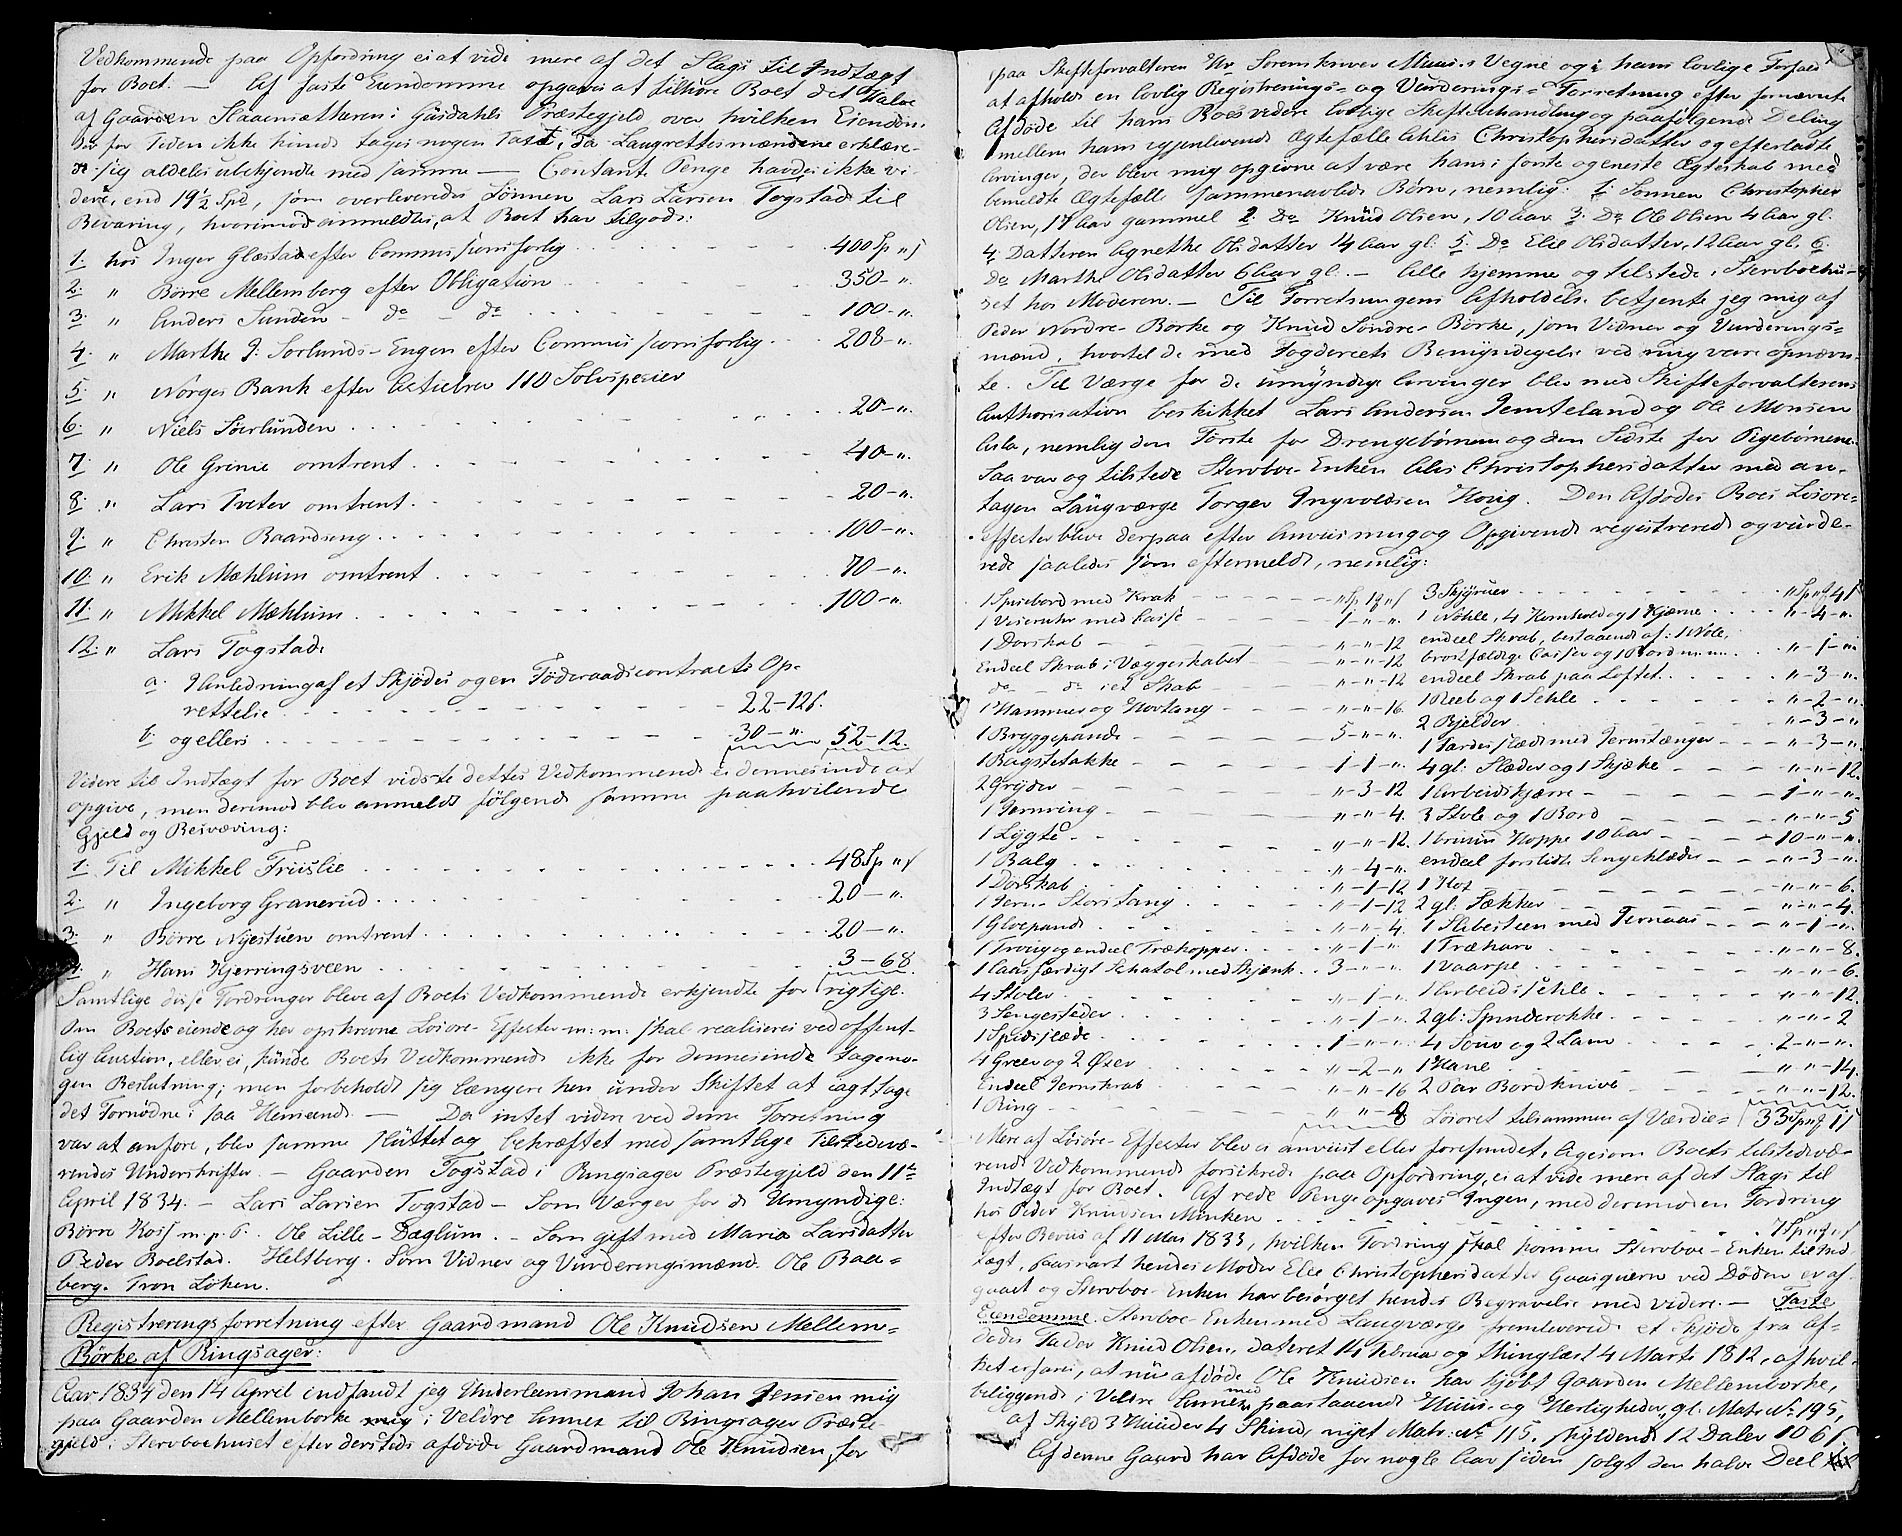 Vedkommende paa Opfordring ei at vide mere af det Slags til Indtægt
for Boet. — Af faste Eiendomme opgaves at tilhøre Boet det Halve
af Gaarden Slaaensætheren i Gusdahls Præstegjeld over hvilken Eiendom
der for Tiden ikke kunde tages nogen Taxt, da Laugrettesmændene erklære-
de sig aldeles ubekjendte med samme — Contante Penge havdes ikke vi-
dere, end 19½ Spd, som overleveredes Sønnen Lars Larsen Togstad til
Bevaring, hvorimod anmeldtes, at Boet har tilgode:
1. hos Inger Glæstad efter Commissionsforlig 400 Sp „ s
2. „ Børre Mellemberg efter Obligation 350 - „
3. „ Anders Sunden - do - do 100 - „
4. „ Marthe J. Sorlunds-Engen efter Commissionsforlig 208 - „
5. „ Norges Bank efter Actiebrev 110 Sølvspecier
6. „ Niels Søerlunden 20 - „
7. „ Ole Grinie omtrent 40 - „
8. „ Lars Tveter omtrent 20 - „
9. „ Christen Baardseng 100 - „
10. „ Erik Mæhlum omtrent 70 - „
11. „ Mikkel Mæhlum 100 - „
12. „ Lars Togstad
a. I Anledning af et Skjødes og en Føderaadscontracts Op-
rettelse 22 - 12 s.
b. og ellers 30 - „ 52 - 12.
Videre til Indtægt for Boet vidste dettes Vedkommende ei dennesinde at
opgive, men derimod blev anmeldt følgende samme paahvilende
Gjeld og Besværing:
1. Til Mikkel Friislie 48 Sp „ s
2. „ Ingeborg Granerud 20 - „
3. „ Børre Nyestuen omtrent 20 - „
4. „ Hans Kjerringsveen 3 - 68
Samtlige disse Fordringer bleve af Boets Vedkommende erkjendte for rigtige.
Om Boets eiende og her opskrevne Løsøre-Effecter m: m: skal realiseres ved offent-
lig Auction, eller ei, kunde Boets Vedkommende ikke for dennesinde tage no-
gen Beslutning; men forbeholdt sig længere hen under Skiftet at iagttage
det Fornødne i saa Henseende. — Da intet videre ved denne Forretning
var at anføre, blev samme sluttet og bekræftet med samtlige Tilstedevæ-
rendes Underskrifter. — Gaarden Togstad i Ringsager Præstegjeld den 11te
April 1834. — Lars Larsen Togstad — Som Værger for de Umyndige:
Børre Kos m. p. P. Ole Lille-Dæglum. — Som gift med Maria Larsdatter
Peder Boelstad. Heltberg. Som Vidner og Vurderingsmænd. Ole Baa-
berg. Tron Løken.
Registreringsforretning efter Gaardmand Ole Knudsen Mellem-
Børke af Ringsager:
Aar 1834 den 14 April indfandt jeg Underleensmand Johan Jensen mig
paa Gaarden Mellemborke i Veldre Annex til Ringsager Præste-
gjeld i Stervboehuset efter dersteds afdøde Gaardmand Ole Knudsen, for
paa Skifteforvalteren Hr Sorenskriver Muus's Vegne og i hans lovlige Forfald
at afholde en lovlig Registrerings- og Vurderings-Forretning efter fornævnte
Afdøde til hans Boes videre lovlige Skiftebehandling og paafølgende Deling
mellem hans igjenlevende Ægtefælle Ahlis Christophersdatter og efterladte
Arvinger, der bleve mig opgivne at være hans i første og eneste Ægteskab med
bemeldte Ægtefælle sammenavlede Børn, nemlig: 1. Sønnen Christopher
Olsen, 17 Aar gammel 2: Do Knud Olsen, 10 Aar 3: Do Ole Olsen 4 Aar gl.
4. Datteren Agnethe Olsdatter 14 Aar gl: 5. Do Elie Olsdatter, 12 Aar gl. 6.
Do Marthe Olsdatter 6 Aar gl. — Alle hjemme og tilstede i Stervboehu-
set hos Moderen. — Til Forretningens Afholdelse betjente jeg mig af
Peder Nordre-Børke og Knud Søndre-Børke, som Vidner og Vurderings-
mænd, hvortil de med Fogderiets Bemyndigelse ved mig vare opnævn-
te. Til Værge for de umyndige Arvinger blev med Skifteforvalterens
Authorisation beskikket Lars Andersen Jemteland og Ole Monsen
Asla, nemlig den Første for Drengebørnene og den Sidste for Pigebørnene.
Saa var og tilstede Stervboe-Enken Ahlis Christophersdatter med an-
tagen Laugværge Torger Ingvoldsen Hovig. Den Afdødes Boes Løsøre-
effecter bleve derpaa efter Anviisning og Opgivende registrerede og vurde-
rede saaledes som eftermeldt, nemlig:
1 Spisebord med Krak
1 Viserurh med Casse 1 - „ - „
1 Dorskab „ - „ - 12
Endeel Skrab i Væggeskabet „ - „ - 12
do - do i et Skab „ - „ - 12
1 Hammer og Hovtang „ - „ - 16.
1 Bryggepande 5 - „ - „
1 Bagstetakke 1 - 1 - „
2 Gryder „ - 3 - 12
1 Jernring „ - „ - 4.
1 Lygte „ - „ - 12.
1 Balg „ - 4 - „
1 Dørskab „ - 1 - 12
1 Jern-Storstang „ - 1 - 12
1 Gloepande „ - „ - 4.
1 Troug og endeel Træhopper „ - 1 - „
1 Laasfærdigt Schatol med Skjænk 3 - „ - „
4 Stoler „ - 1 - „
3 Sengesteder „ - 1 - „
1 Spidsslæde 1 - „ - „
4 Greev og 2 Øxer „ - 2 - „
Endeel Jernskrab „ - „ - 16
1 Ring „ „ - 8
3 Skjyruer „ Sp „ s 4 s
1 Nohle, 4 Hemhold og 1 Kjærne „ - 4 - „
endeel Skrab, bestaaende af: 1 Nole,
brøstfældige Casser og 1 Bord m: m: „ - 1 - „
endeel Skrab paa Loftet „ - 3 - „
1 Reeb og 1 Sehle „ - 2 - „
2 Bjelder „ - 3 - „
1 Færdesslæde med Jernstænger „ - 3 - „
4 gl: Slæder og 1 Skjæke „ - „ - 12.
1 Arbeidskjærre 1 - „ - „
3 Stole og 1 Bord „ - „ - 5
1 bruun Hoppe 10 Aar 10 - „ - „
endeel forslidte Sengeklæder „ - 3 - „
1 Kot „ - „ - 6.
2 gl: Sækker „ - „ - 4.
1 Slibesteen med Jernaas „ - 1 - „
1 Træharv „ - „ - 8.
1 Vaarpe „ - „ - 6.
1 Arbeidssehle „ - „ - 12
2 gl: Spinderokke „ - „ - 2
4 Souv og 2 Lam 2 - „ - „
1 Hane „ - „ - 14.
2 Par Bordknive „ - „ - 12.
Løsøret tilsammen af Værdie
Mere af Løsøre-Effecter blev ei anviist eller forefundet, ligesom Boets tilstedevæ-
rende Vedkommende forsikrede paa Opfordring, ei at vide mere af det Slags til
Indtægt for Boet. Af rede Penge opgaves Ingen, med derimod en Fordring
hos Peder Knudsen Minken 7 Sp „ s
efter Beviis af 11 Mai 1833, hvilken Fordring skal komme Stervboe-Enken til Ind-
tægt, saasnart hendes Moder Elie Christophersdatter Gaasquern ved Døden er af-
gaaet og Stervboe-Enken har besørget hendes Begravelse med videre. — Faste
Eiendomme. Stervboe-Enken med Laugværge fremleverede et Skjøde fra Af-
dødes Fader Knud Olsen, dateret 14 Februar og thinglæst 4 Marts 1812, af hvil-
ket erfares, at nu afdøde Ole Knudsen har kjøbt Gaarden Mellemborke,
beliggende i Veldre Annex med paastaaende Huus- og Herligheder, gl. Matr. No 195,
af Skyld 3 Huuder 4 Skind, nyet Matr: No 115. skyldende 12 Daler 106 s
Af denne Gaard har Afdøde for nogle Aar siden solgt den halve Deel